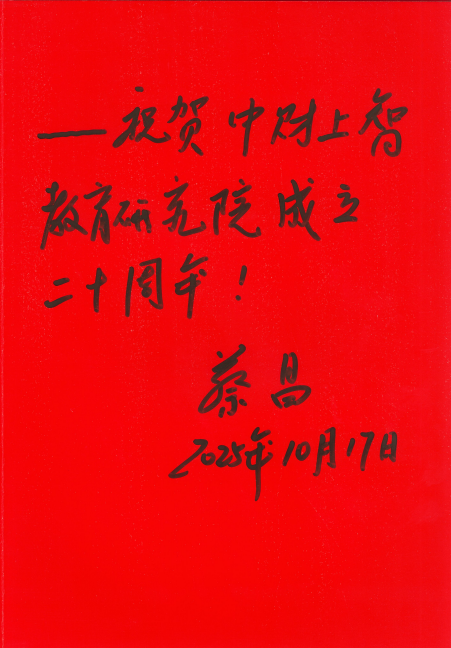 ——祝贺中财上智
教育研究院成立
二十周年！
蔡昌
2025年10月17日